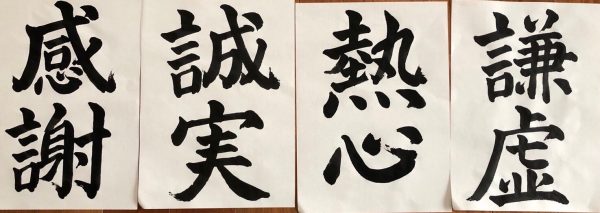 感謝
誠実
熱心
謙虚